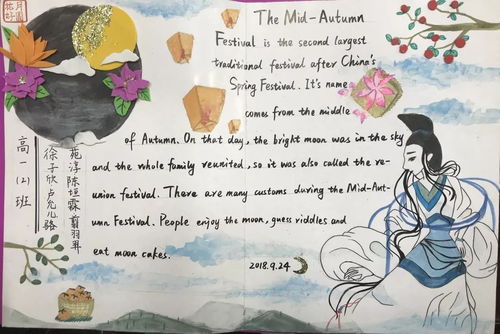 The Mid-Autumn
Festival is the second largest
traditional festival after China's
Spring Festival. It's name
comes from the middle
of Autumn. On that day, the bright moon was in the sky
and the whole family reunited, so it was also called the re-
union festival. There are many customs during the Mid-Aut-
umn Festival. People enjoy the moon, guess riddles and
eat moon cakes.
2018.9.24
高一(2)班
徐子欣